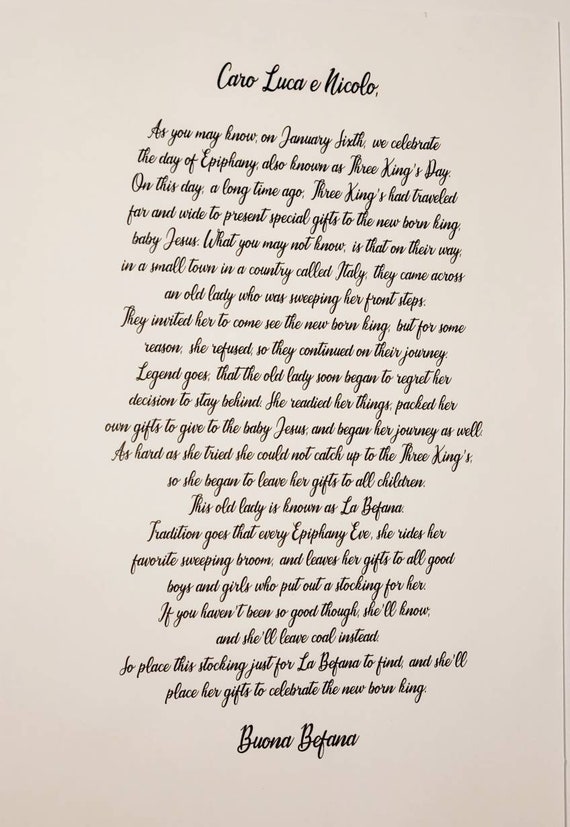 Caro Luca e Nicolo,
As you may know, on January Sixth, we celebrate
the day of Epiphany, also known as Three King's Day.
On this day, a long time ago, Three King's had traveled
far and wide to present special gifts to the new born king,
baby Jesus. What you may not know, is that on their way,
in a small town in a country called Italy, they came across
an old lady who was sweeping her front steps.
They invited her to come see the new born king, but for some
reason, she refused, so they continued on their journey.
Legend goes, that the old lady soon began to regret her
decision to stay behind. She readied her things, packed her
own gifts to give to the baby Jesus, and began her journey as well.
As hard as she tried she could not catch up to the Three King's,
so she began to leave her gifts to all children.
This old lady is known as La Befana.
Tradition goes that every Epiphany Eve, she rides her
favorite sweeping broom, and leaves her gifts to all good
boys and girls who put out a stocking for her.
If you haven't been so good though, she'll know,
and she'll leave coal instead.
So place this stocking just for La Befana to find, and she'll
place her gifts to celebrate the new born king.
Buona Befana